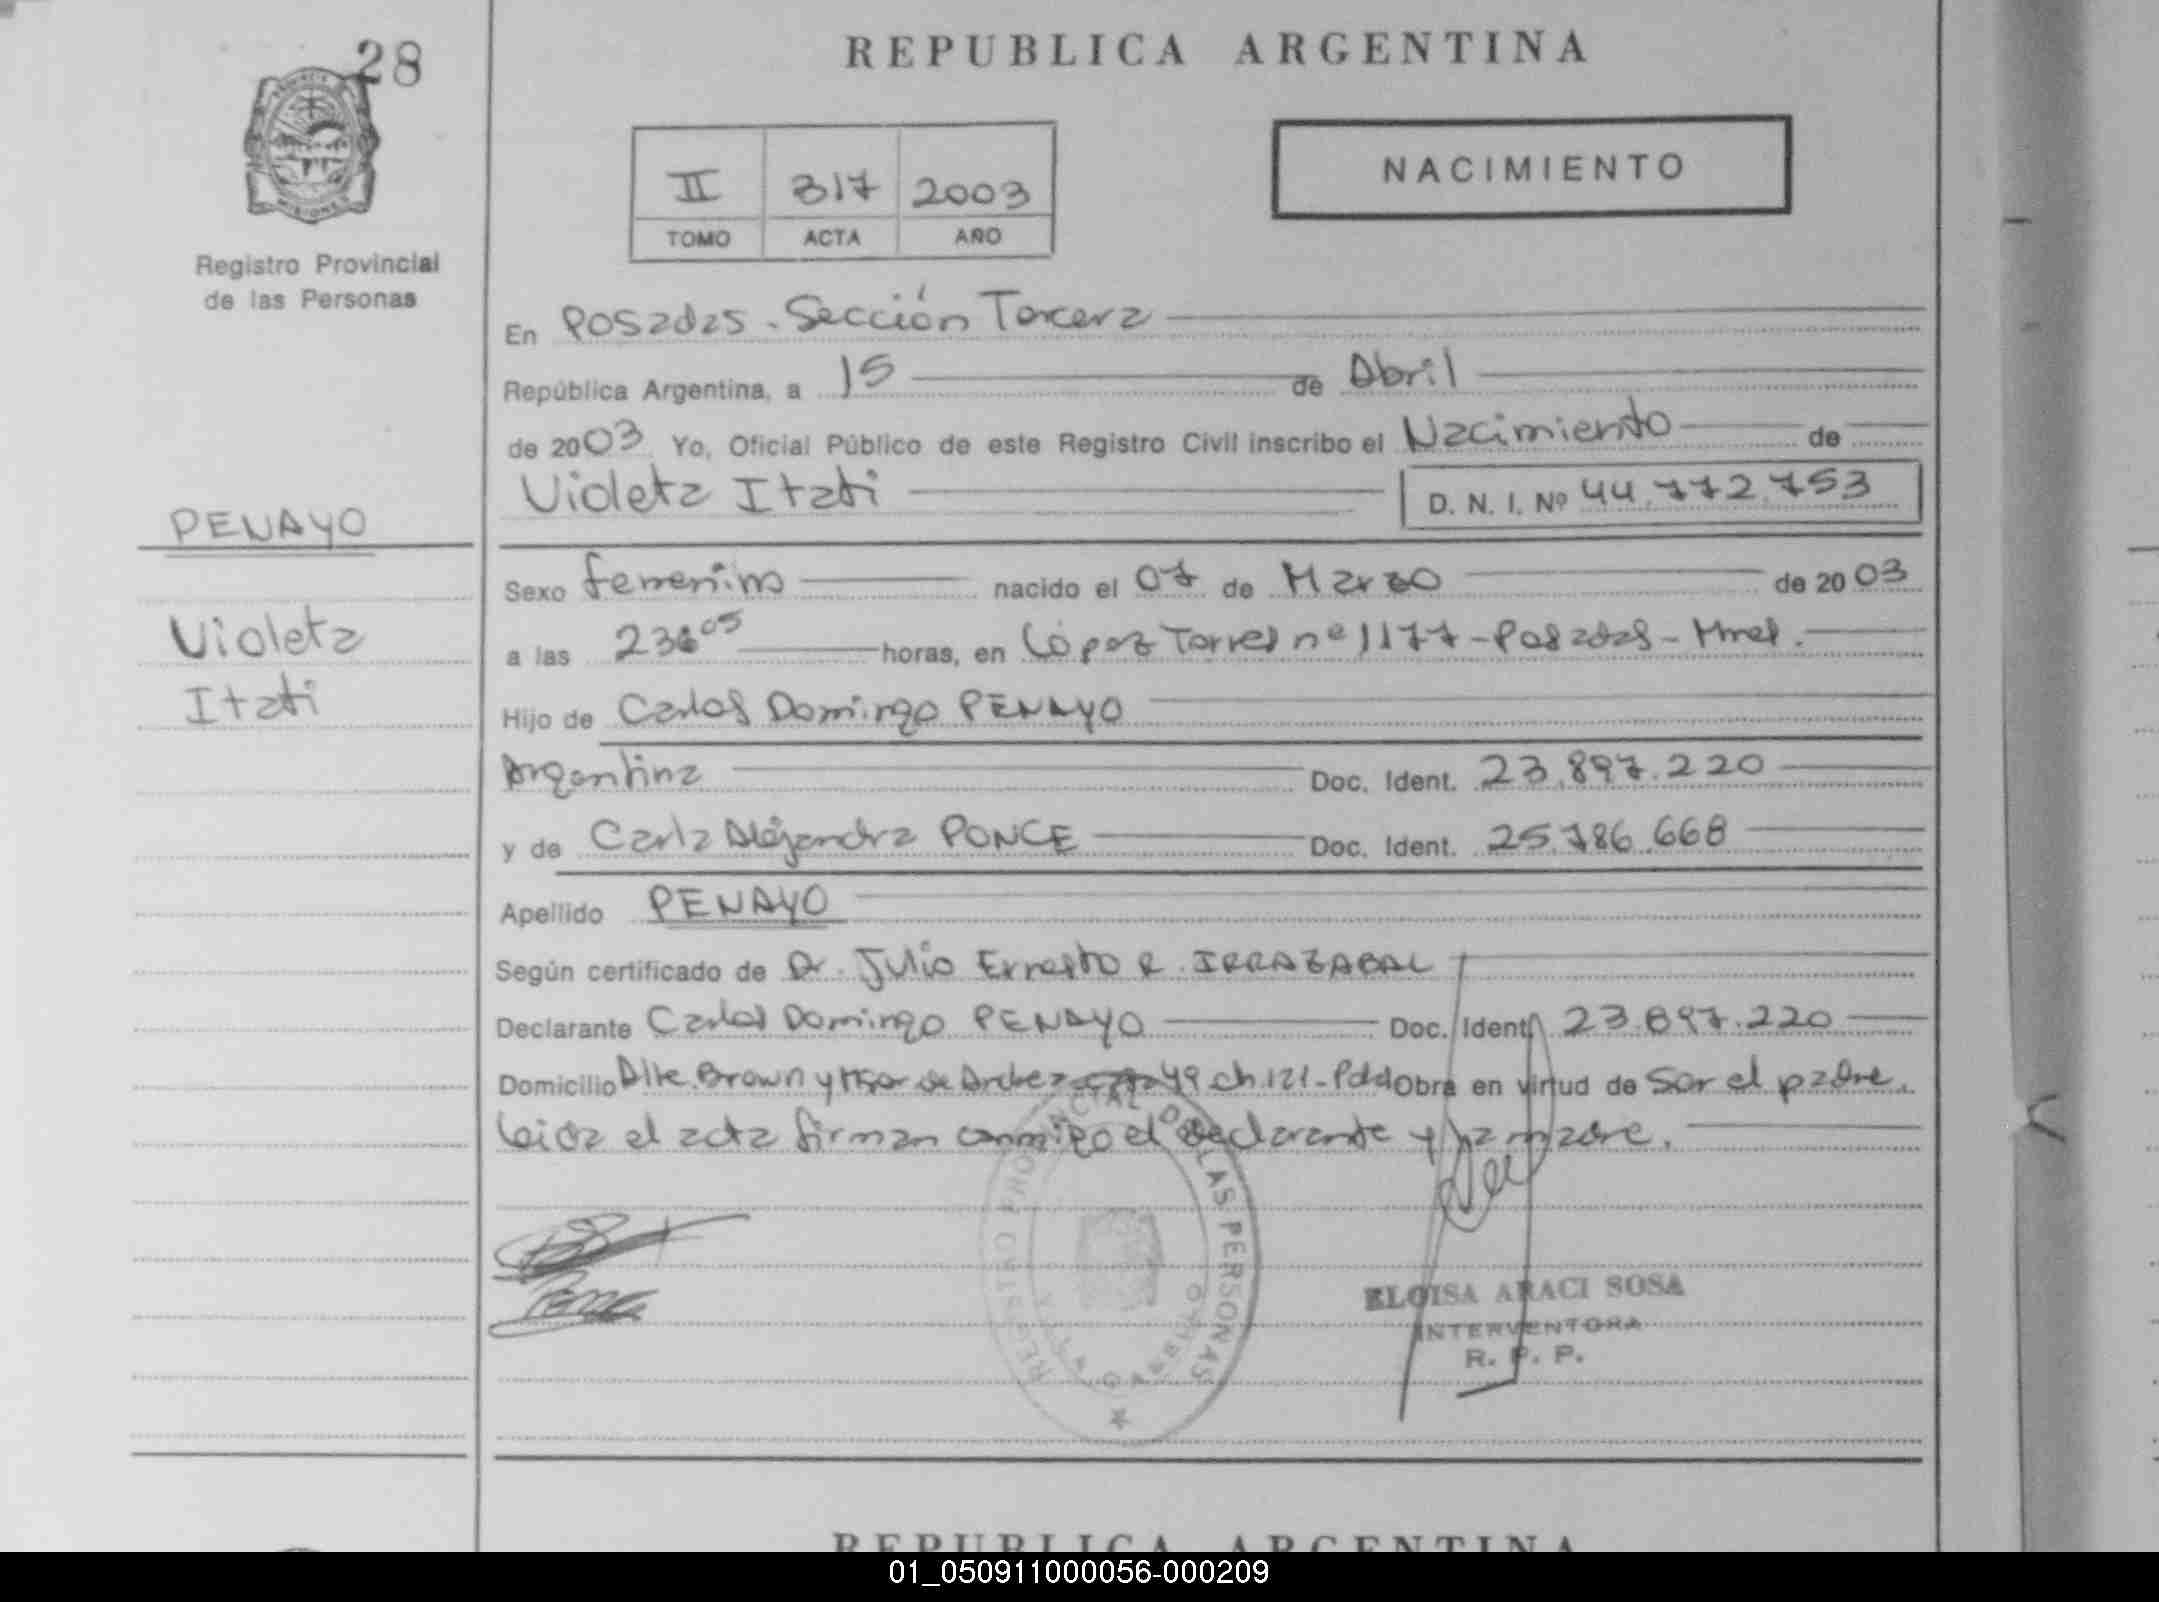 28
REPUBLICA ARGENTINA
NACIMIENTO
II 317 2003
TOMO ACTA AÑO
PROVINCIA
MISIONES
Registro Provincial
de las Personas
En Posadas - Sección Tercera
República Argentina, a 15 de Abril
de 2003 Yo, Oficial Público de este Registro Civil inscribo el Nacimiento de
Violeta Itati D. N. I. Nº 44.772.753
PENAYO
Violeta
Itati
Sexo femenino nacido el 07 de Marzo de 2003
a las 23 05 horas, en López Torres nº 1177 - Posadas - Mnes.
Hijo de Carlos Domingo PENAYO
Argentina Doc. Ident. 23.897.220
y de Carla Alejandra PONCE Doc. Ident. 25.786.668
Apellido PENAYO
Según certificado de Dr. Julio Ernesto R. IRRAZABAL
Declarante Carlos Domingo PENAYO Doc. Ident. 23.897.220
Domicilio Alte. Brown y 49 ch. 121 - Pdas Obra en virtud de ser el padre.
Leida el acta firman conmigo el declarante y la madre.
REGISTRO PROVINCIAL DE LAS PERSONAS
VILLA GABELLO
ELOISA ARACI SOSA
INTERVENTORA
R. P. P.
REPUBLICA ARGENTINA
01_050911000056-000209